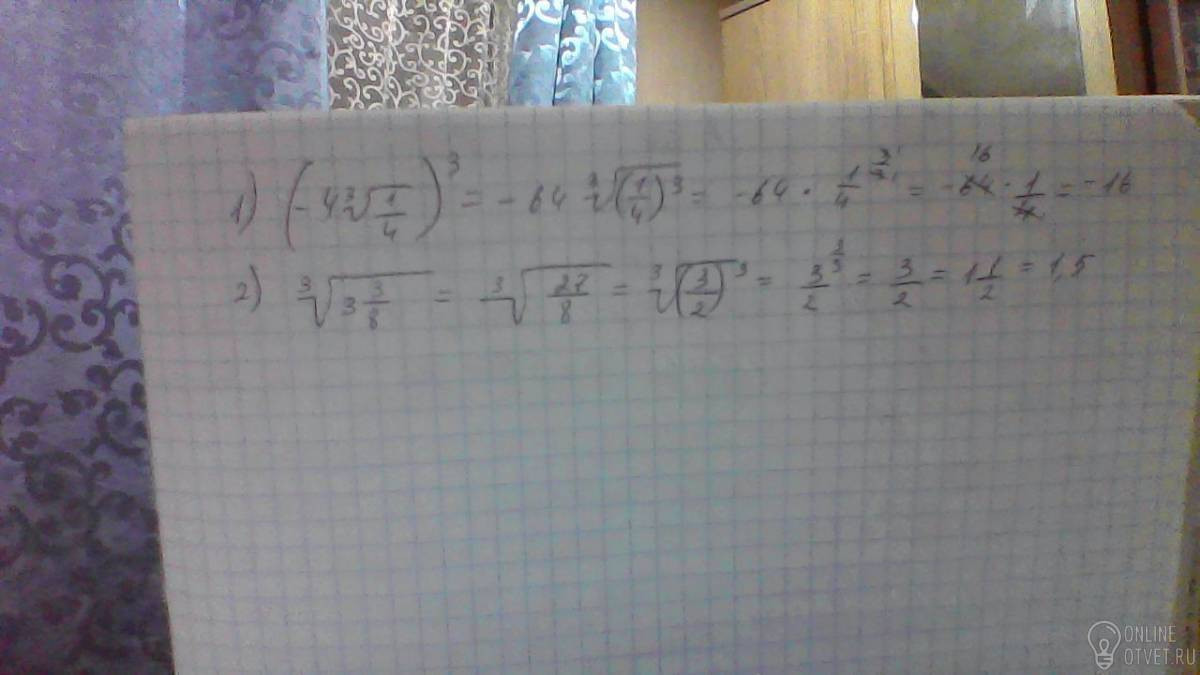 1) (-4∛(1/4))³ = -64 ∛((1/4)³) = -64 · (1/4)^(3/3) = -64 · 1/4 = -16
2) ∛(3 3/8) = ∛(27/8) = ∛((3/2)³) = (3/2)^(3/3) = 3/2 = 1 1/2 = 1,5
ONLINE
OTVET.RU